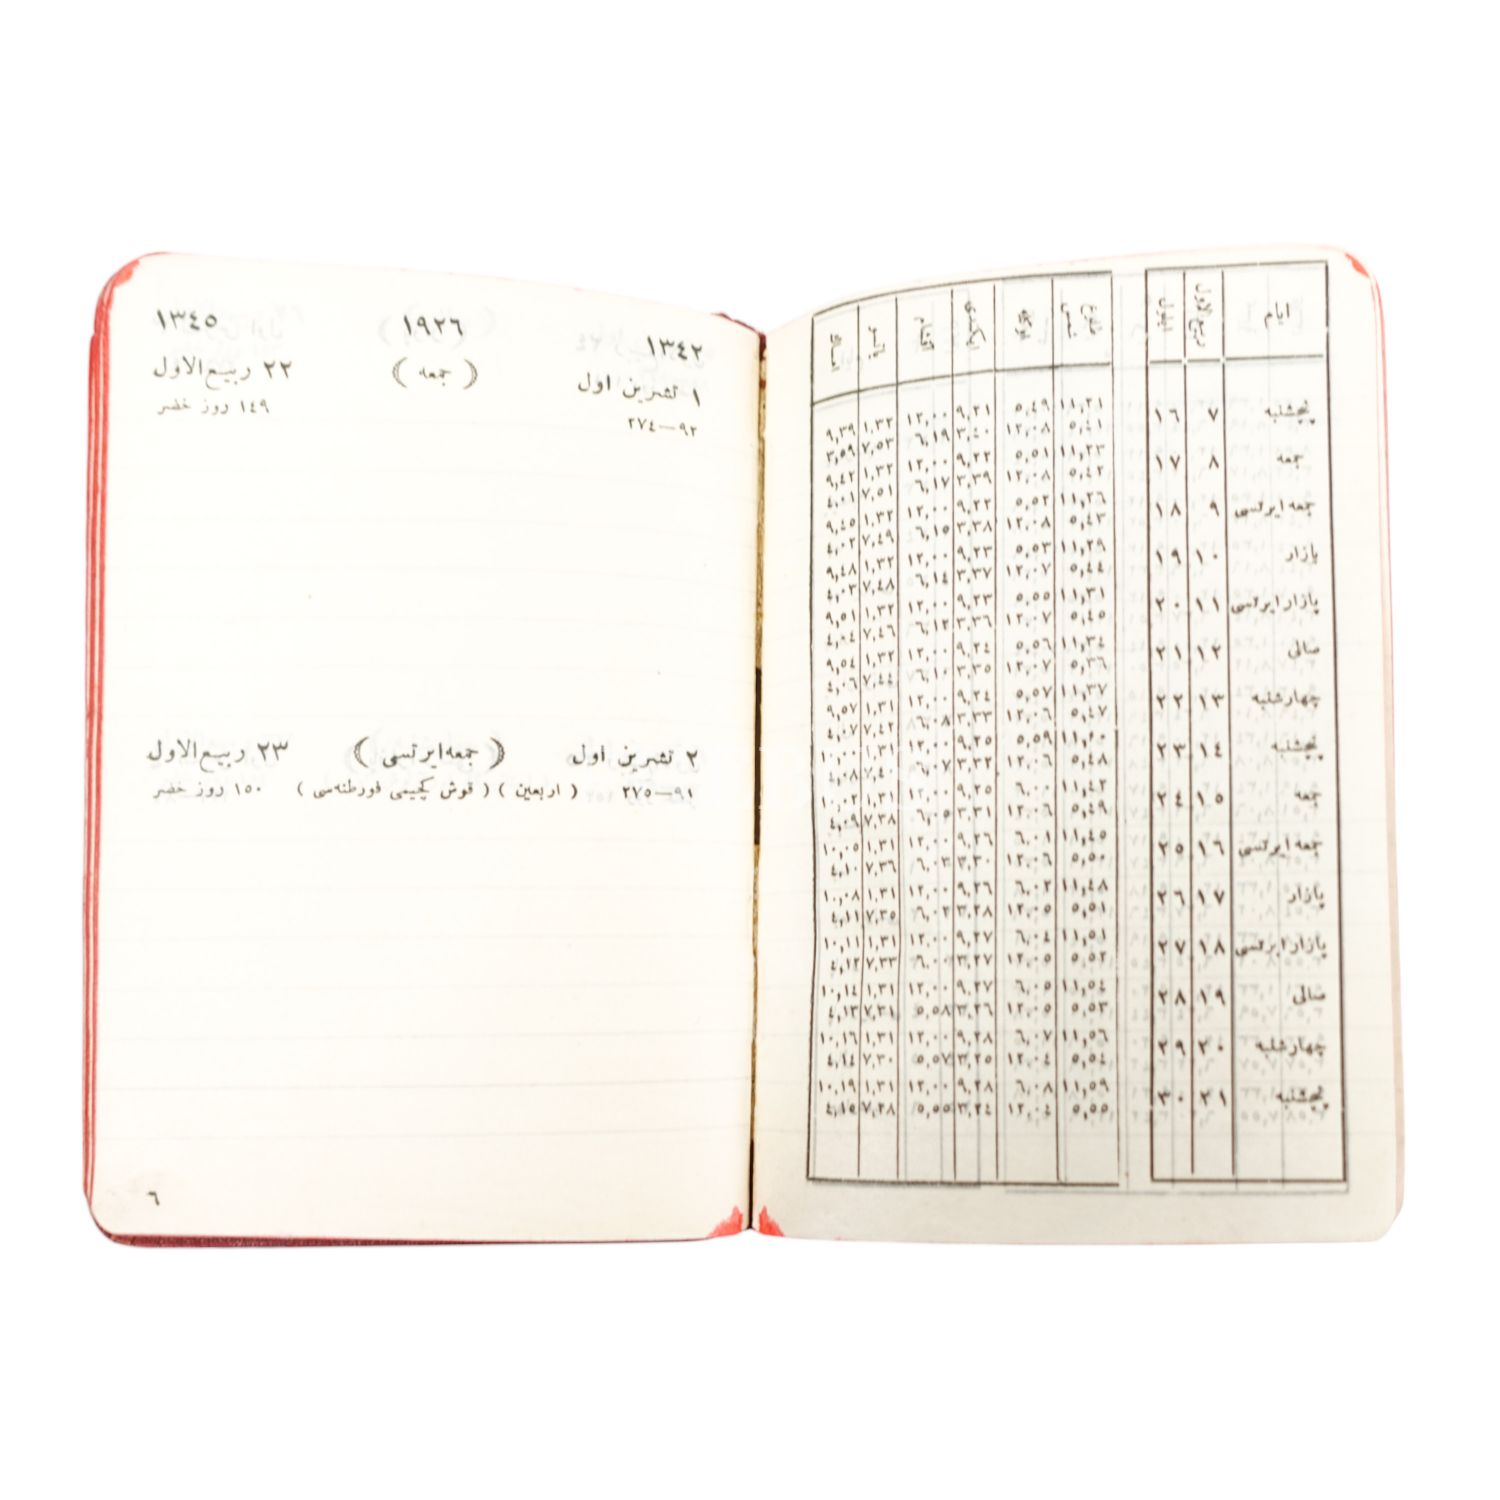 ایام ربیع الاول ایلول طلوع شمس اویله ایکندی اقشام یاتسو امساك
پنجشنبه ٧ ١٦ ١١,٢١ ٥,٤٩ ٩,٢١ ١٢,٠٠ ١,٣٢ ٩,٣٩
٥,٤١ ١٢,٠٨ ٣,٤٠ ٦,١٩ ٧,٥٣ ٣,٥٩
جمعه ٨ ١٧ ١١,٢٣ ٥,٥١ ٩,٢٢ ١٢,٠٠ ١,٣٢ ٩,٤٢
٥,٤٢ ١٢,٠٨ ٣,٣٩ ٦,١٧ ٧,٥١ ٤,٠١
جمعه ایرتسی ٩ ١٨ ١١,٢٦ ٥,٥٢ ٩,٢٢ ١٢,٠٠ ١,٣٢ ٩,٤٥
٥,٤٣ ١٢,٠٨ ٣,٣٨ ٦,١٥ ٧,٤٩ ٤,٠٢
پازار ١٠ ١٩ ١١,٢٩ ٥,٥٣ ٩,٢٣ ١٢,٠٠ ١,٣٢ ٩,٤٨
٥,٤٤ ١٢,٠٧ ٣,٣٧ ٦,١٤ ٧,٤٨ ٤,٠٣
پازار ایرتسی ١١ ٢٠ ١١,٣١ ٥,٥٥ ٩,٢٣ ١٢,٠٠ ١,٣٢ ٩,٥١
٥,٤٥ ١٢,٠٧ ٣,٣٦ ٦,١٢ ٧,٤٦ ٤,٠٤
صالی ١٢ ٢١ ١١,٣٤ ٥,٥٦ ٩,٢٤ ١٢,٠٠ ١,٣٢ ٩,٥٤
٥,٣٦ ١٢,٠٧ ٣,٣٥ ٦,١٠ ٧,٤٤ ٤,٠٦
چهارشنبه ١٣ ٢٢ ١١,٣٧ ٥,٥٧ ٩,٢٤ ١٢,٠٠ ١,٣١ ٩,٥٧
٥,٤٧ ١٢,٠٦ ٣,٣٣ ٦,٠٨ ٧,٤٢ ٤,٠٧
پنجشنبه ١٤ ٢٣ ١١,٤٠ ٥,٥٩ ٩,٢٥ ١٢,٠٠ ١,٣١ ١٠,٠٠
٥,٤٨ ١٢,٠٦ ٣,٣٢ ٦,٠٧ ٧,٤٠ ٤,٠٨
جمعه ١٥ ٢٤ ١١,٤٢ ٦,٠٠ ٩,٢٥ ١٢,٠٠ ١,٣١ ١٠,٠٢
٥,٤٩ ١٢,٠٦ ٣,٣١ ٦,٠٥ ٧,٣٨ ٤,٠٩
جمعه ایرتسی ١٦ ٢٥ ١١,٤٥ ٦,٠١ ٩,٢٦ ١٢,٠٠ ١,٣١ ١٠,٠٥
٥,٥٠ ١٢,٠٦ ٣,٣٠ ٦,٠٣ ٧,٣٦ ٤,١٠
پازار ١٧ ٢٦ ١١,٤٨ ٦,٠٢ ٩,٢٦ ١٢,٠٠ ١,٣١ ١٠,٠٨
٥,٥١ ١٢,٠٥ ٣,٢٨ ٦,٠٢ ٧,٣٥ ٤,١١
پازار ایرتسی ١٨ ٢٧ ١١,٥١ ٦,٠٤ ٩,٢٧ ١٢,٠٠ ١,٣١ ١٠,١١
٥,٥٢ ١٢,٠٥ ٣,٢٧ ٦,٠٠ ٧,٣٣ ٤,١٢
صالی ١٩ ٢٨ ١١,٥٤ ٦,٠٥ ٩,٢٧ ١٢,٠٠ ١,٣١ ١٠,١٤
٥,٥٣ ١٢,٠٥ ٣,٢٦ ٥,٥٨ ٧,٣١ ٤,١٣
چهارشنبه ٢٠ ٢٩ ١١,٥٦ ٦,٠٧ ٩,٢٨ ١٢,٠٠ ١,٣١ ١٠,١٦
٥,٥٤ ١٢,٠٤ ٣,٢٥ ٥,٥٧ ٧,٣٠ ٤,١٤
پنجشنبه ٢١ ٣٠ ١١,٥٩ ٦,٠٨ ٩,٢٨ ١٢,٠٠ ١,٣١ ١٠,١٩
٥,٥٥ ١٢,٠٤ ٣,٢٤ ٥,٥٥ ٧,٢٨ ٤,١٥
١٣٤٢ ١٩٢٦ ١٣٤٥
١ تشرین اول ( جمعه ) ٢٢ ربیع الاول
٩٢—٢٧٤ ١٤٩ روز خضر
٢ تشرین اول ( جمعه ایرتسی ) ٢٣ ربیع الاول
٩١—٢٧٥ ( اربعین ) ( قوش کچیمی فورطنه‌سی ) ١٥٠ روز خضر
٦